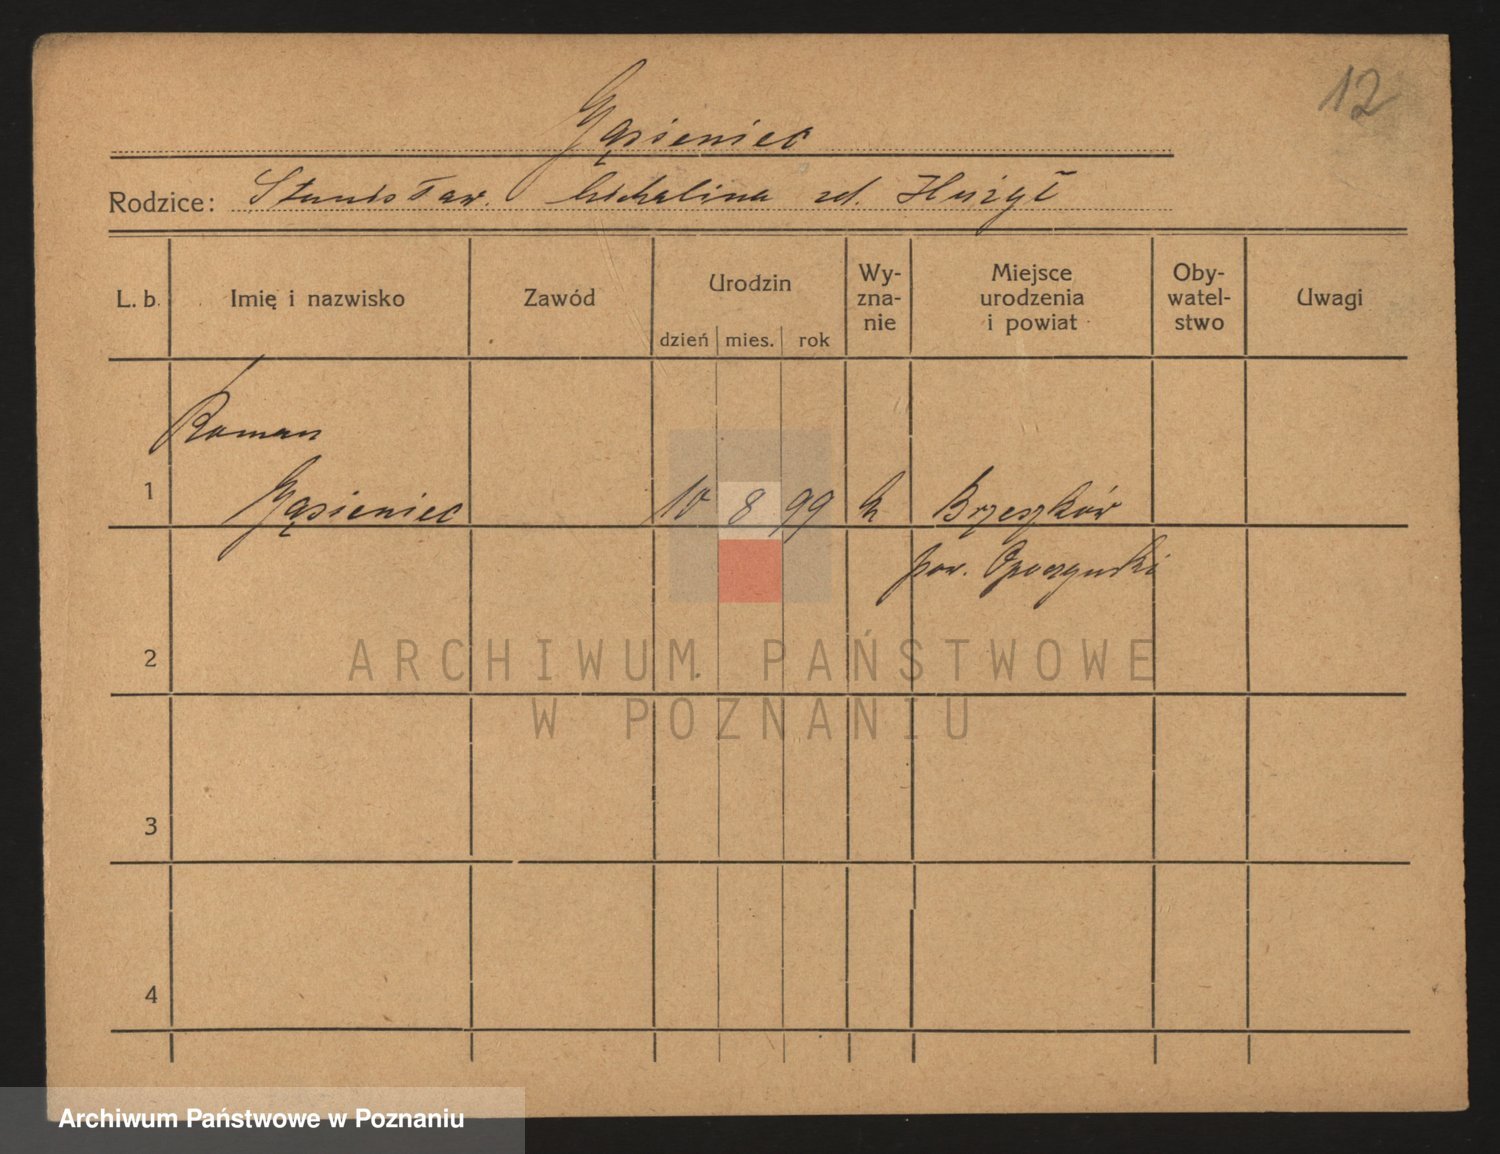 12
Gąsieniec
Rodzice: Stanisław. Michalina zd. Hużył
L. b. Imię i nazwisko Zawód Urodzin Wy- Miejsce Oby- Uwagi
zna- urodzenia watel-
nie i powiat stwo
dzień mies. rok
Roman
1 Gąsieniec 10 8 99 k Brzeszków
pow. Opoczyński
2
ARCHIWUM PAŃSTWOWE
W POZNANIU
3
4
Archiwum Państwowe w Poznaniu